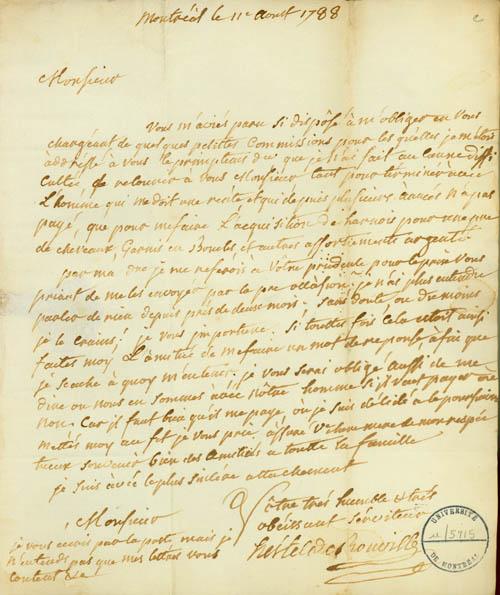 Montréal le 11e aoust 1788
Monsieur
Vous m'aviés paru si dispôsé à m'obliger en vous
chargéant de quelques petites Commissions pour les quelles je m'étois
addréssé à vous que je n'ai fait aucune diffi
cultée de retourner à vous Monsieur tant pour terminér avec
L'homme qui me doit une rente et qui depuis plusieurs années n'a pas
payé, que pour me faire L'acquisition de harnois pour une paire
de chevaux, Garnis en Boucles et autres assortiments argenté
par ma je me referois a Vôtre prudence pour le prix vous
priant de me les envoyér par la pre occasion, je n'ai plus entendu
parler de rien depuis près de deux mois. Sans doute ou du moins
je le crains! je vous importune. Si touttes fois cela étoit ainsi
faites moy L'amitié de me faire un mot de reponse afin que
je scache à quoy m'en tenir. je vous serai obligé aussi de me
dire ou nous en sommes avec nôtre homme s'il veut payer ou
non. Car il faut bien qu'il me paye, ou je suis décidé à le poursuivre
mettés moy au fil je vous prie assuré Mere de mon respéc
tueux souvenir bien des Amitiés a toutte la famille
je suis avec le plus sincère attachement
Monsieur
Vôtre très humble & très
obéissant Sérviteur
hertel de Rouville
je vous écris par la poste, mais je
n'entends pas que mes lettres vous
coutent &c
UNIVERSITÉ
5715
DE MONTRÉAL